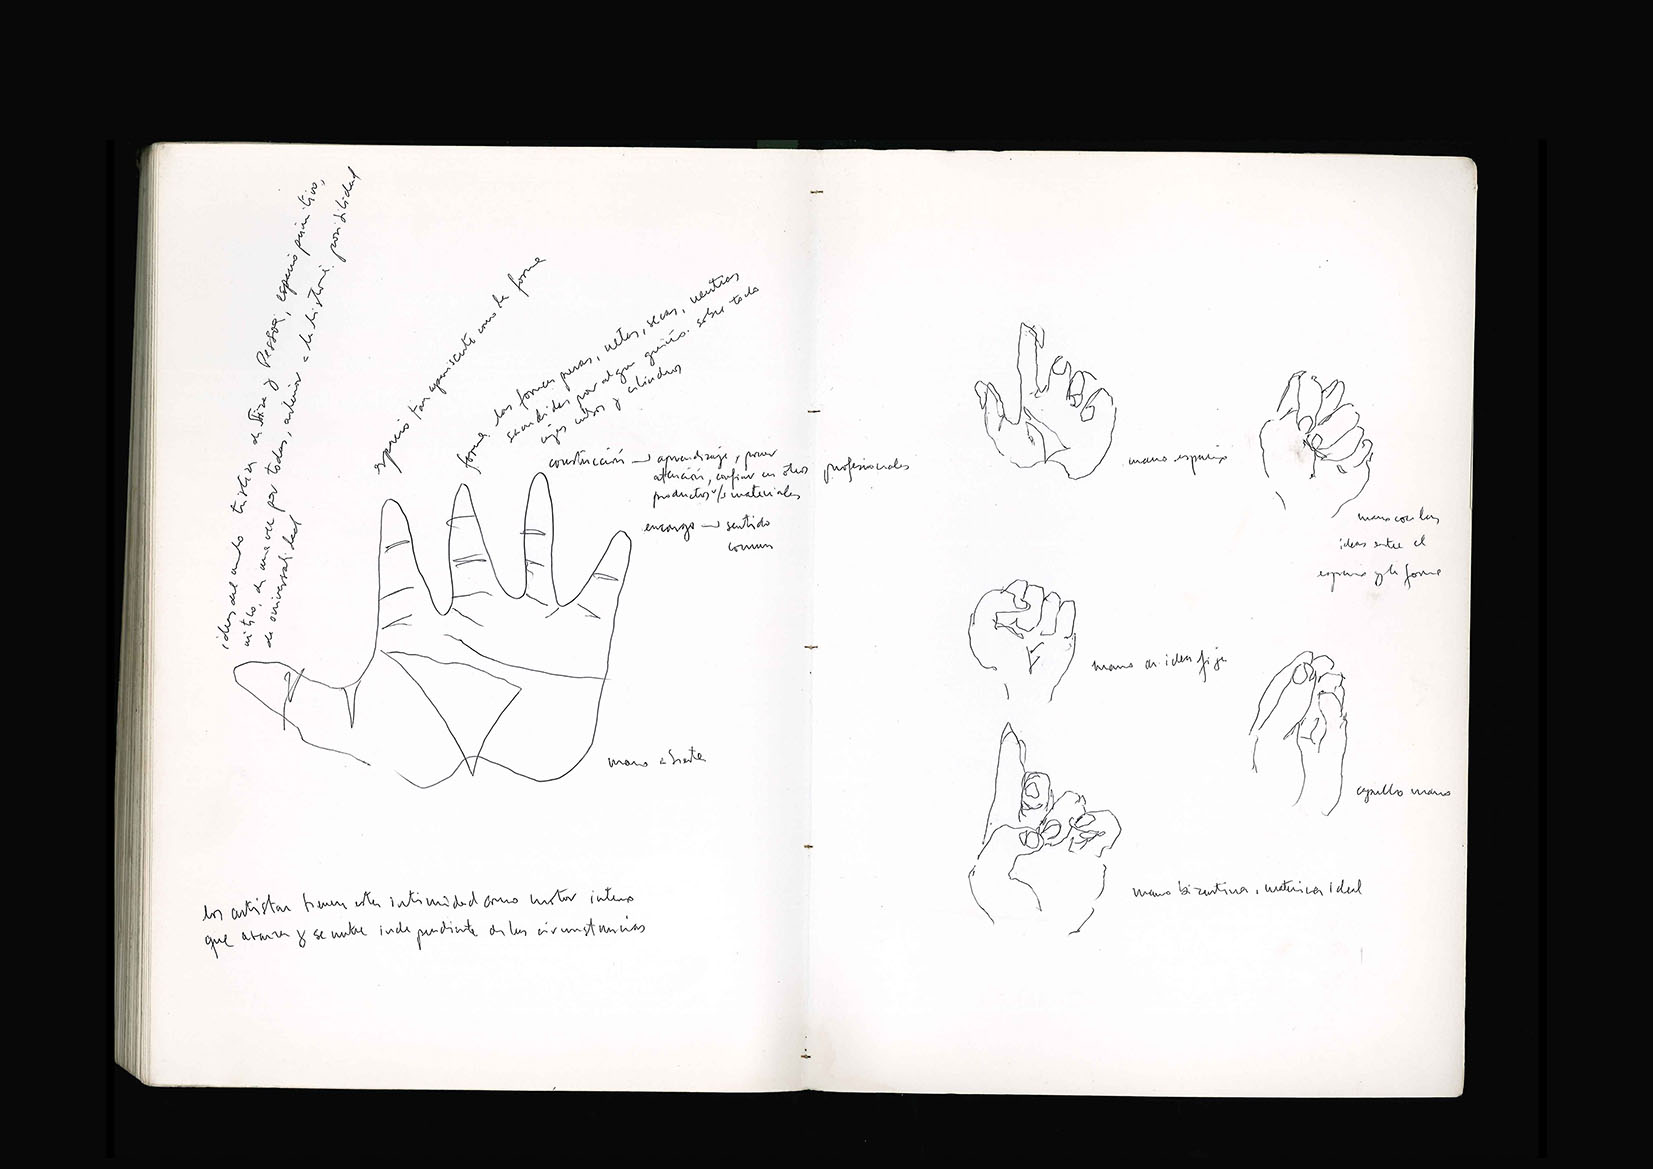 ideas del mundo
y Pessoa, espacio primitivo,
mítico, de una vez por todas, anterior a la historia. posibilidad
de universalidad
espacio tan apariencia como la forma
forma. las formas puras, netas, secas, neutras
sacudidas por algún guiño. sobre todo
cubos y cilindros
construcción → aprendizaje, poner
atención, confiar en otros profesionales
productos y/o materiales
encargo → sentido
común
mano abierta
los artistas tienen esta intimidad como motor interno
que avanza y se nutre independiente de las circunstancias
mano espacio
mano con las
ideas entre el
espacio y la forma
mano de idea fija
capullo mano
mano bizantina, ideal